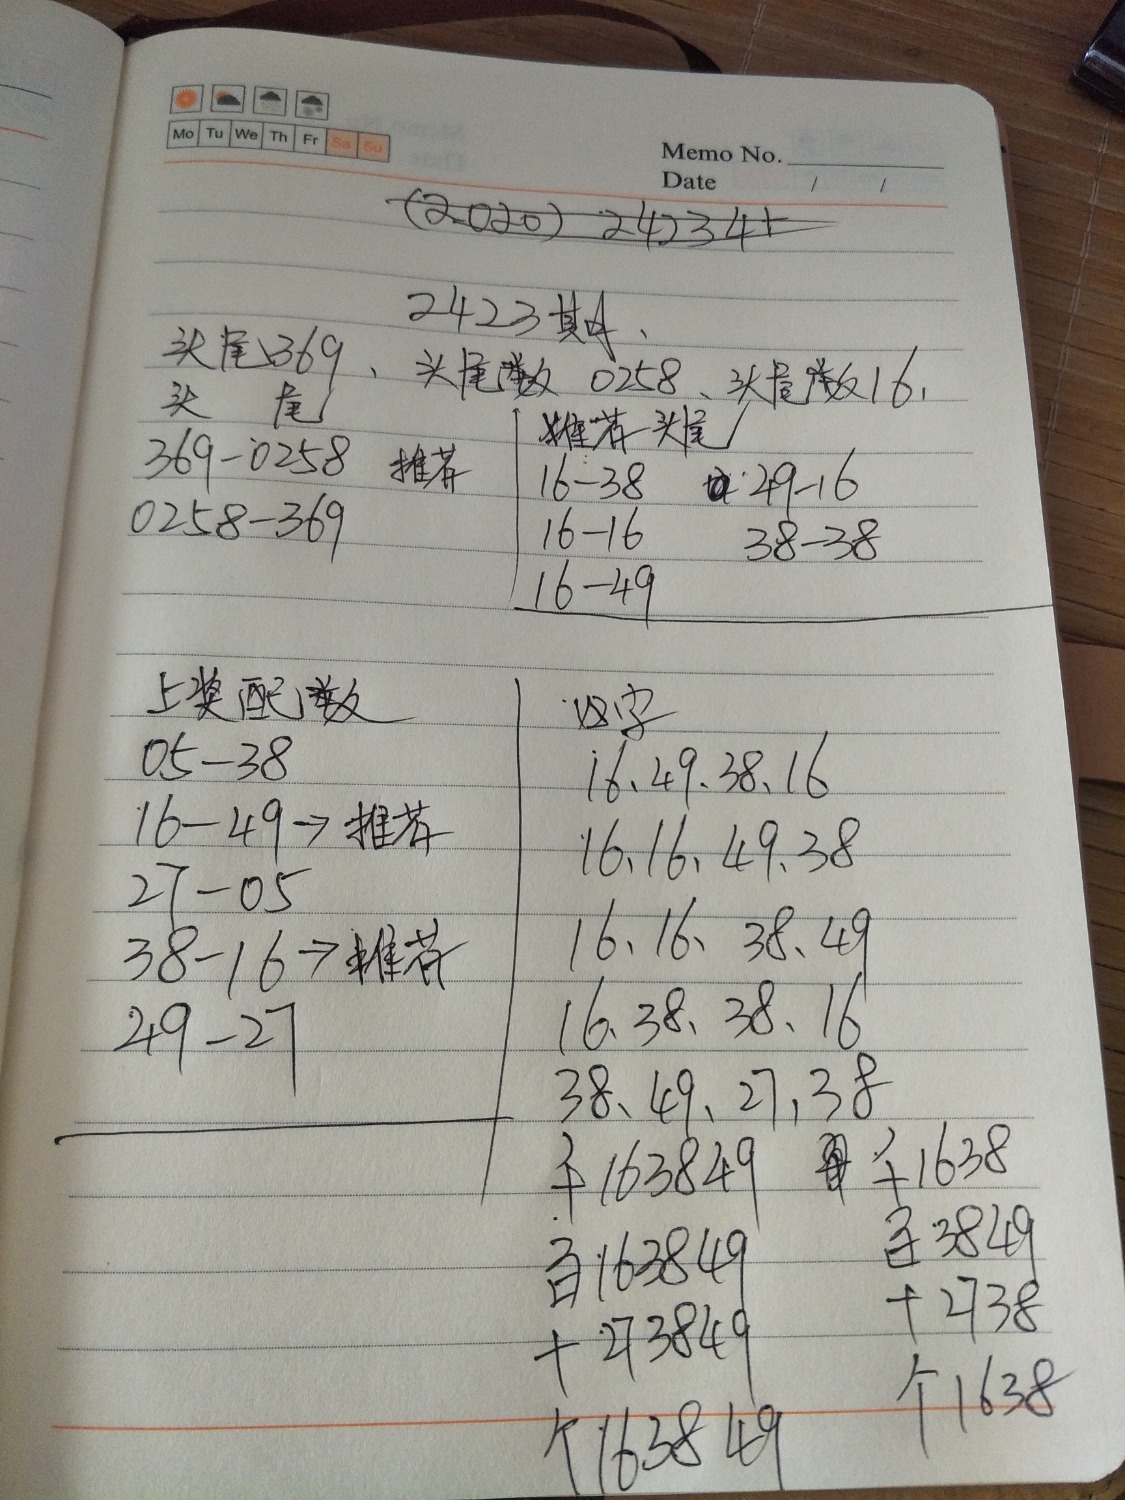 Mo Tu We Th Fr Sa Su
Memo No.
Date / /
(2020) 24234
2423期、
头尾369、头尾数0258、头尾数16.
头 尾
369-0258 推荐
0258-369
推荐头尾
16-38 49-16
16-16 38-38
16-49
上奖配数
05-38
16-49→推荐
27-05
38-16→推荐
49-27
四字
16、49、38、16
16、16、49、38
16、16、38、49
16、38、38、16
38、49、27、38
千163849 千1638
百163849 百3849
十273849 十2738
个163849 个1638